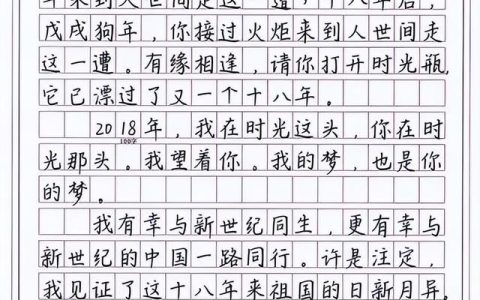 年来到人世间走这一遭，十八年后，
戊戌狗年，你接过火炬来到人世间走
这一遭。有缘相逢，请你打开时光瓶，
它已漂过了又一个十八年。
2018年，我在时光这头，你在时
100字
光那头。我望着你。我的梦，也是你
的梦。
我有幸与新世纪同生，更有幸与
新世纪的中国一路同行。许是注定，
我见证了这十八年来祖国的日新月异，